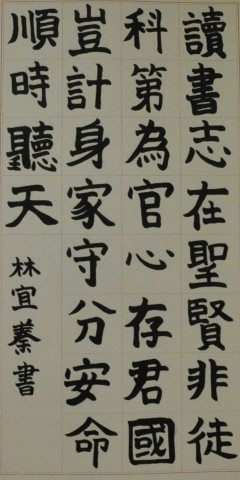 讀書志在聖賢非徒
科第為官心存君國
豈計身家守分安命
順時聽天
林宜蓁書